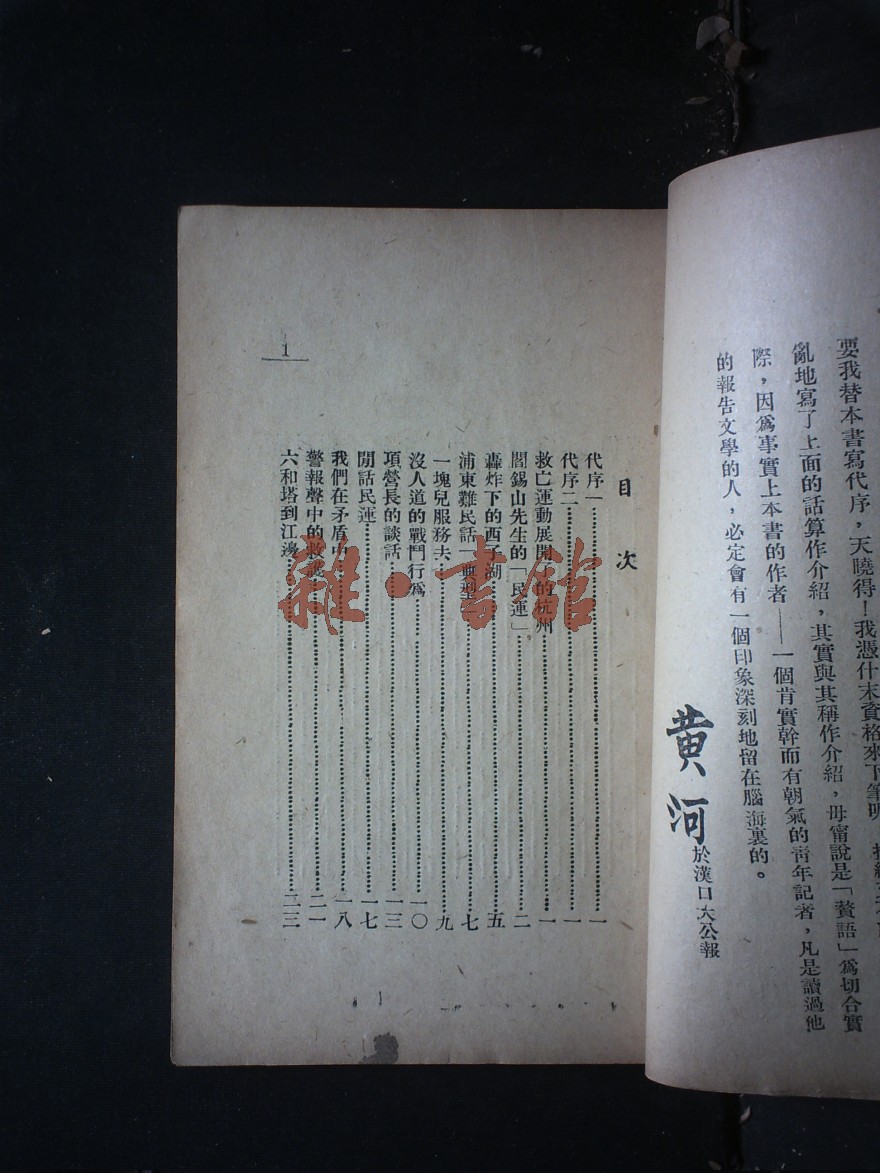 要我替本書寫代序，天曉得！我憑什末資格來下筆呢
亂地寫了上面的話算作介紹，其實與其稱作介紹，毋甯說是「贅語」爲切合實
際，因爲事實上本書的作者——一個肯實幹而有朝氣的青年記者，凡是讀過他
的報告文學的人，必定會有一個印象深刻地留在腦海裏的。
黄河於漢口大公報
目次
代序一……一
代序二……一
救亡運動展開了的杭州……一
閻錫山先生的「民運」……二
轟炸下的西子湖……五
浦東難民話「典型」……七
一塊兒服務去……九
沒人道的戰鬥行爲……一〇
項營長的談話……一三
閒話民運……一七
我們在矛盾中……一八
警報聲中的救護……二一
六和塔到江邊……二三
1
雜·書館